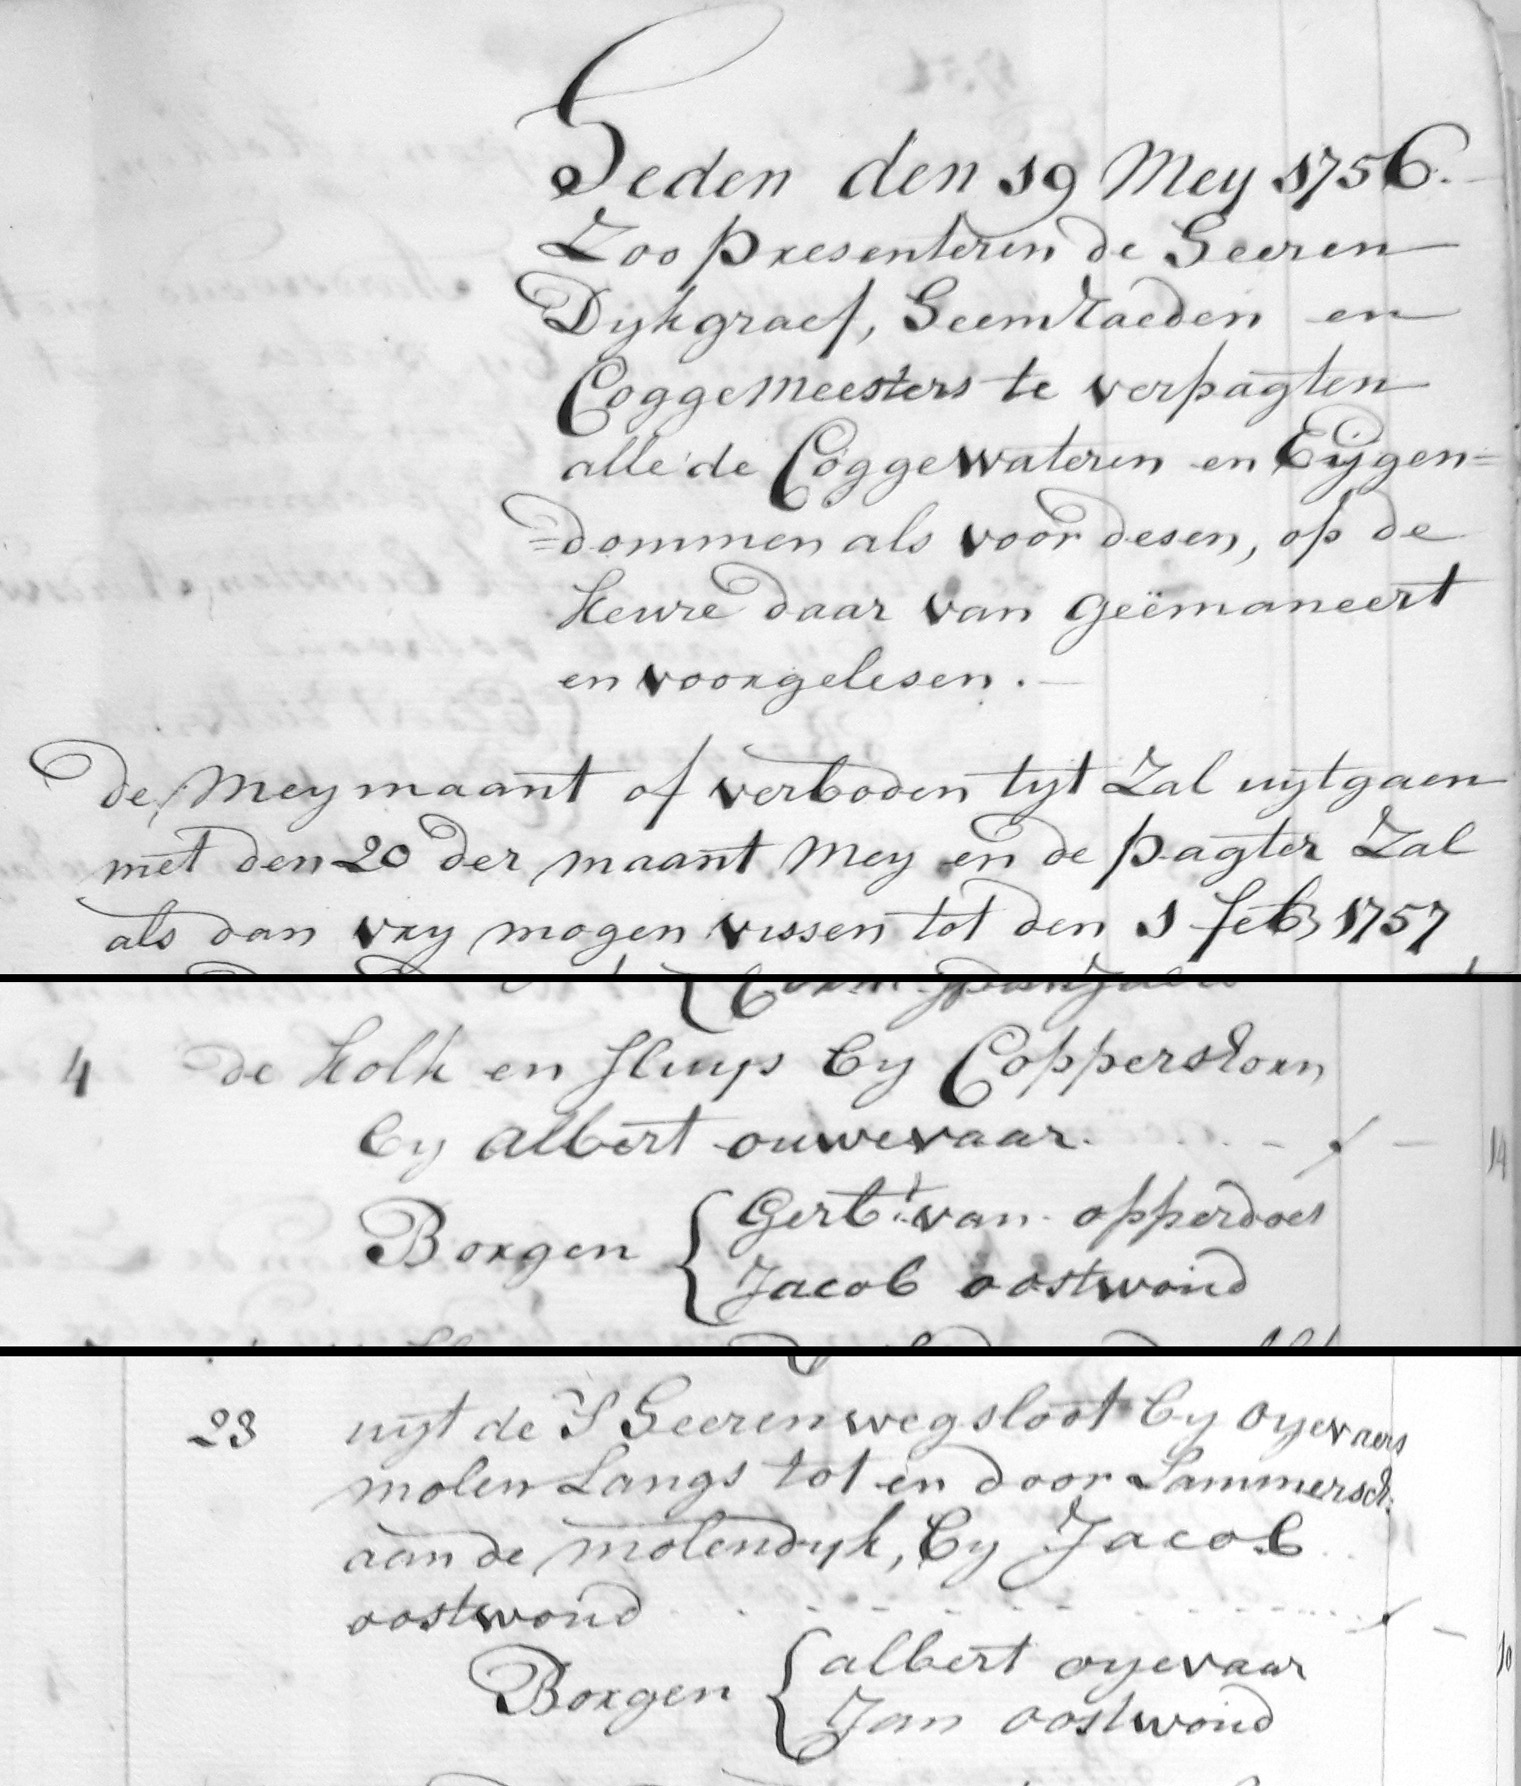 Heden den 19 Mey 1756.
Zoo presenteren de Heeren
Dijkgraef, Heemraeden en
Coggemeesters te verpagten
alle de Coggewateren en Eijgen=
=dommen als voor desen, op de
keure daar van geëmaneert
en voorgelesen.
de Meymaant of verboden tyt Zal uijtgaen
met den 20 der maant Mey en de pagter Zal
als dan vry mogen vissen tot den 1 feb 1757
4 de kolk en sluys by Copperhorn
by albert ouwevaar.
14
Borgen { Gerbt. van opperdoes
Jacob oostwoud
23 uijt de S Heerenwegsloot by oyevaers
molen Langs tot en door Lammersch:
aan de molendyk, by Jacob
oostwoud
Borgen { albert oyevaar
10
Jan oostwoud